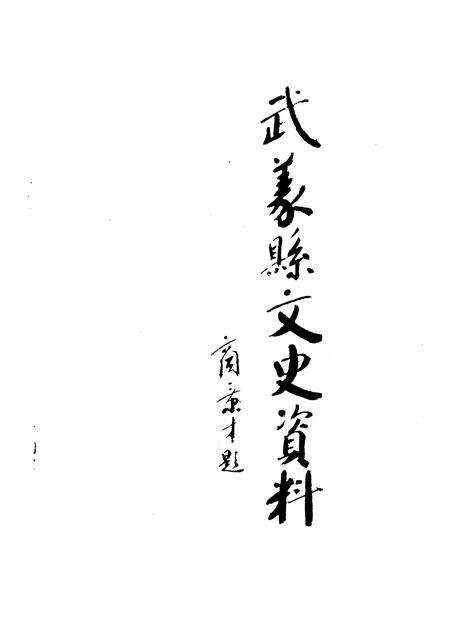 武義縣文史資料
商景才題